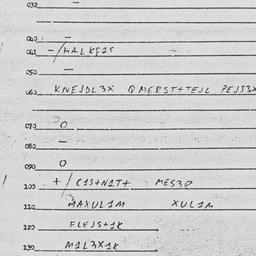 032 –
040 –
041 –/HALKS1S
050 –
060 KNEJDL3X QMERST+TEJL PEJS3X
070 O
080 –
090 O
100 +/C1S+N1T+ MES3R
110 MAXUL1M XUL1M
120 FLEJS+1K
130 M1L3X1K